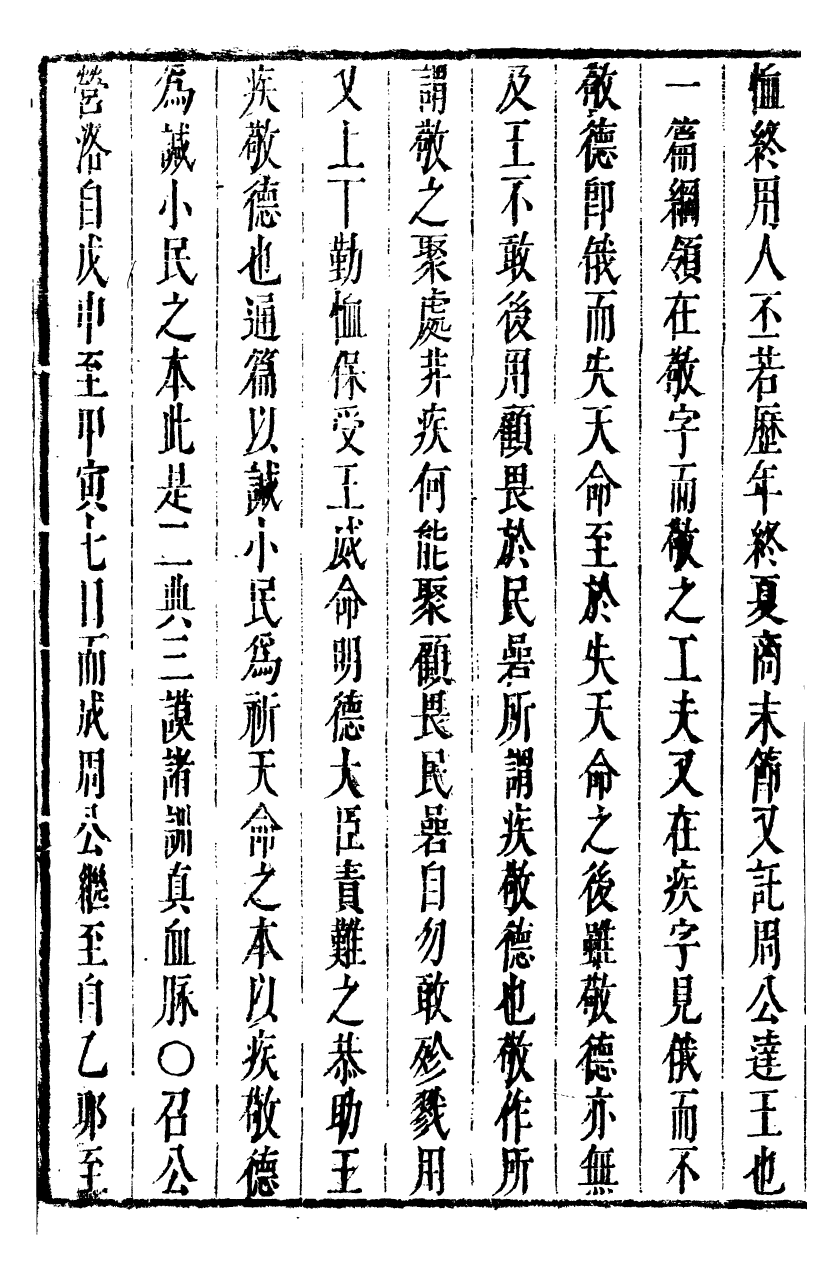 恤終用人丕若歷年終夏商末節又託周公達王也
一篇綱領在敬字而敬之工夫又在疾字見俄而不
敬德卽俄而失天命至於失天命之後雖敬德亦無
及王不敢後用顧畏於民碞所謂疾敬德也敬作所
謂敬之聚處非疾何能聚顧畏民碞自勿敢殄戮用
又上下勤恤保受王威命明德大臣責難之恭助王
疾敬德也通篇以諴小民爲祈天命之本以疾敬德
爲諴小民之本此是二典三謨諸訓真血脉○召公
營洛自戊申至甲寅七日而成周公繼至自乙夘至